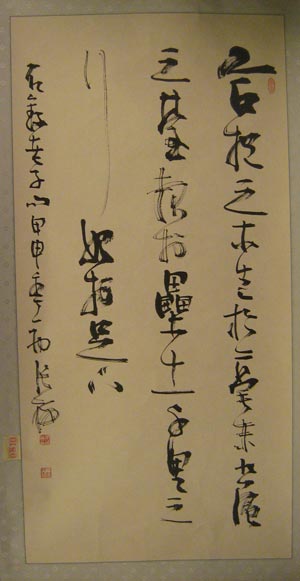 合抱之木生於毫末九層
之臺起於壘土千里之
行始於足下
右錄老子句甲申